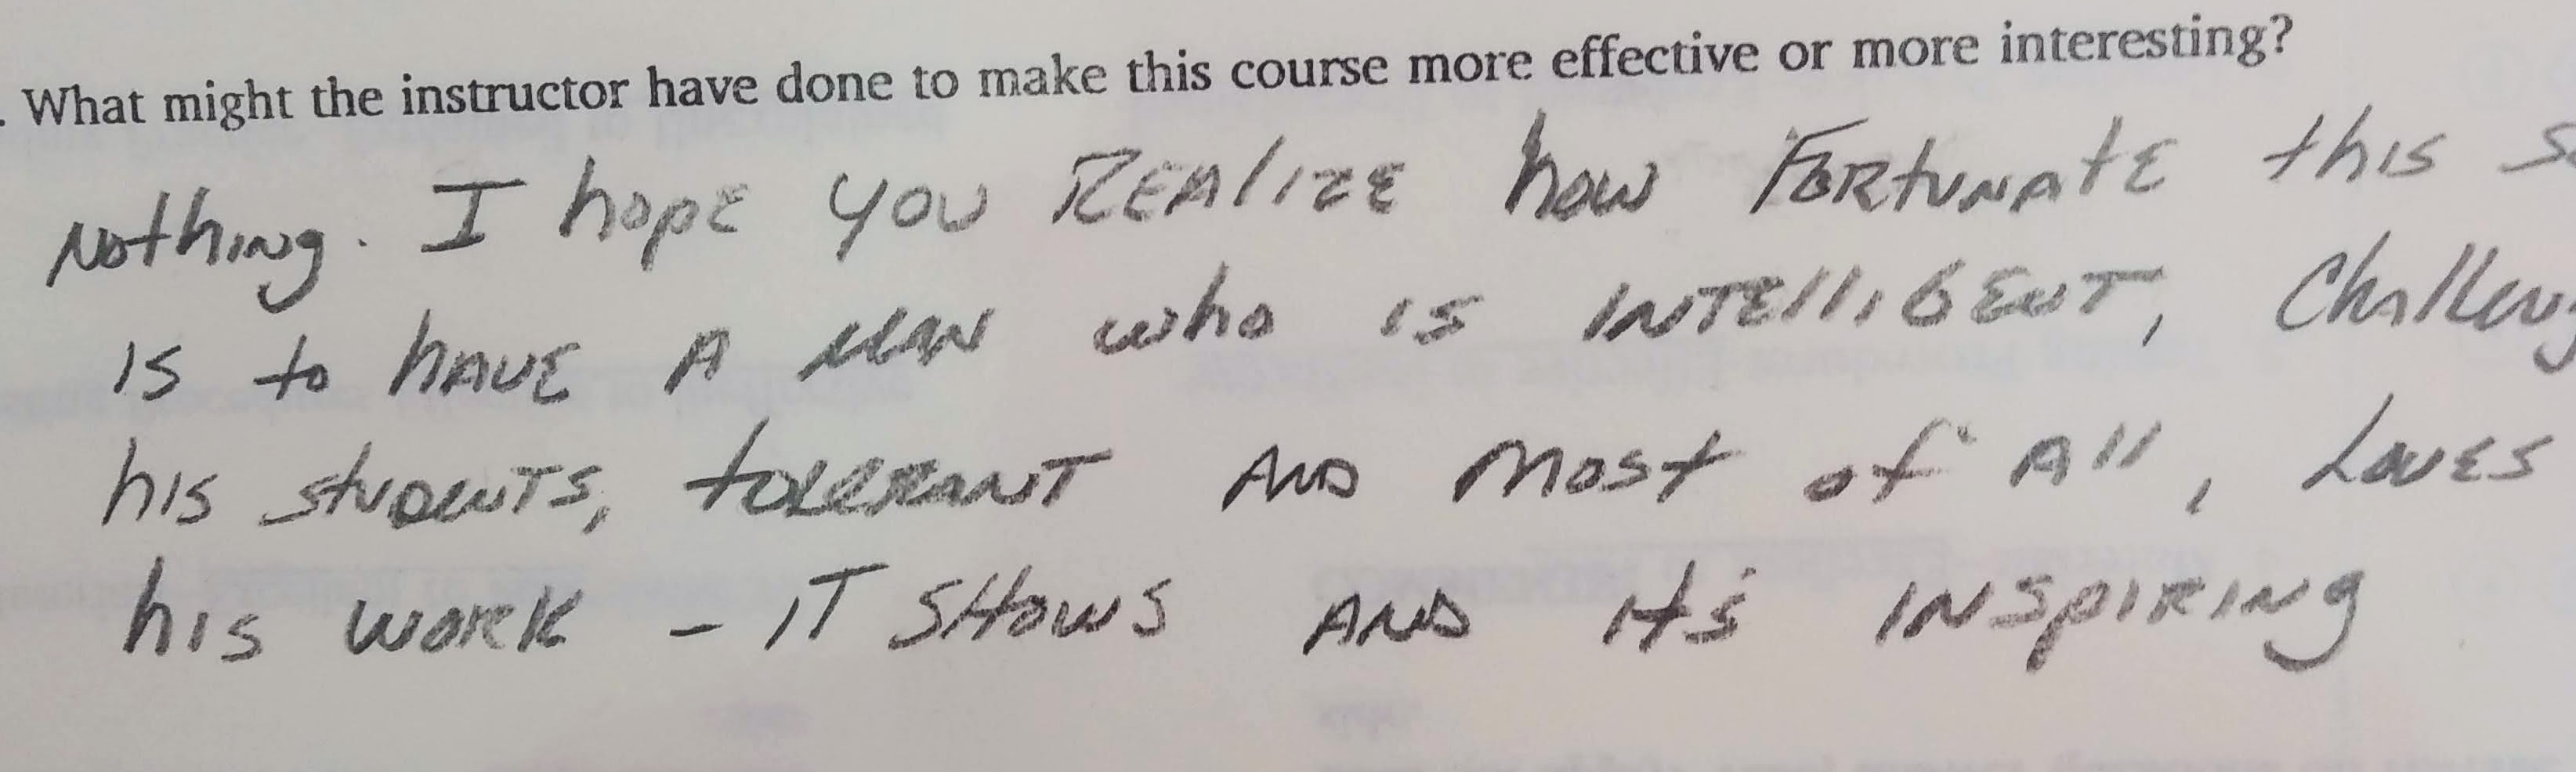 . What might the instructor have done to make this course more effective or more interesting?
Nothing. I hope you REALIZE how FORTUNATE this
is to HAVE A MAN who is INTElliGENT,
his STUDENTS, tOLERANT AND MOST of All, Loves
his WORK - IT SHOWS AND it's INSPIRING